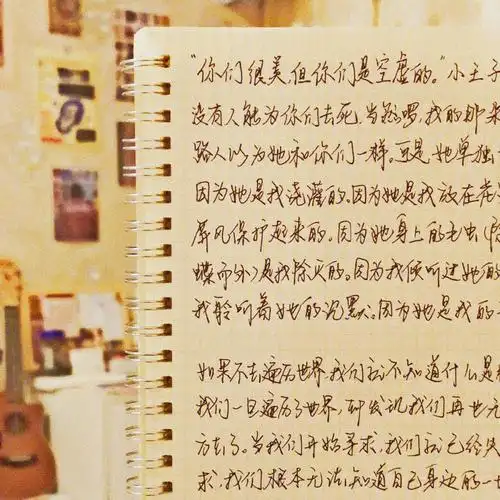 “你们很美,但你们是空虚的。”小王子
没有人能为你们去死。当然啰,我的那朵
路人以为她和你们一样。可是,她单独
因为她是我浇灌的。因为她是我放在花
屏风保护起来的。因为她身上的毛虫(除
蝶而外)是我除灭的。因为我倾听过她的
我聆听着她的沉默。因为她是我的
如果不去遍历世界,我们就不知道什么是
我们一旦遍历了世界,却发现我们再也无
方去了。当我们开始寻求,我们就已经失
求,我们根本无法知道自己身边的一